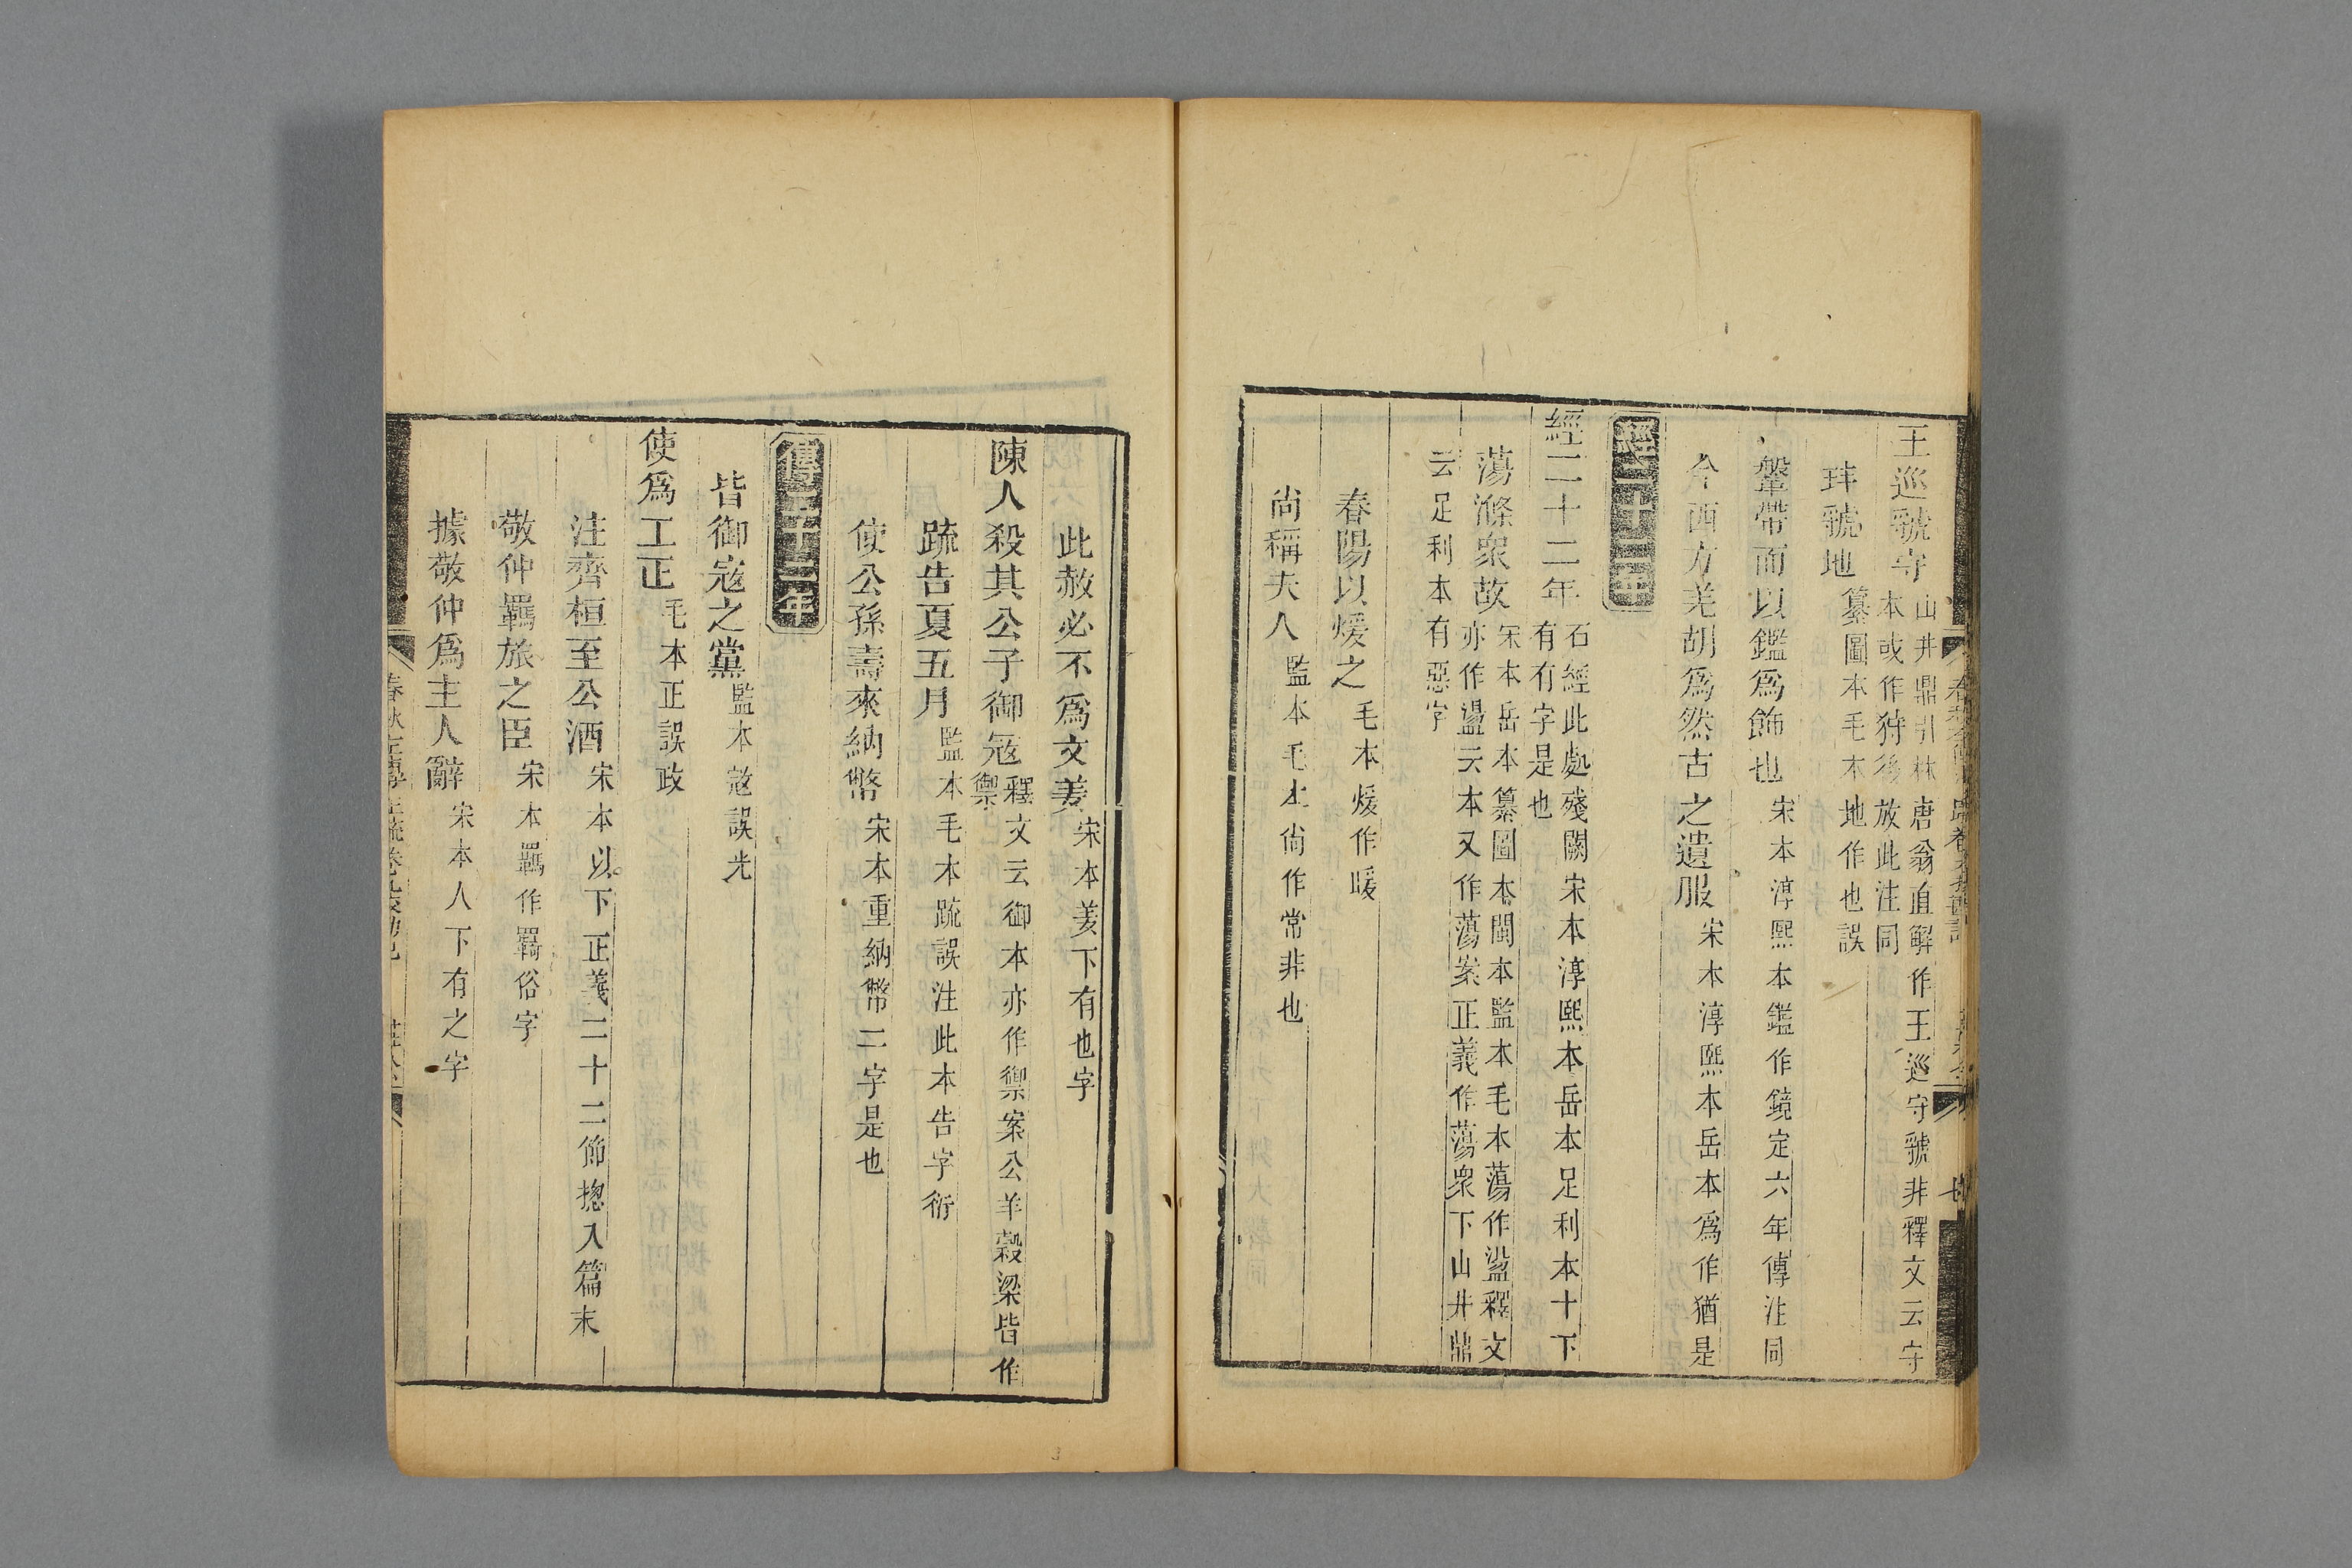 王巡虢守 山井鼎引林唐翁直解作王巡守虢非釋文云守
本或作狩後放此注同
玤虢地 纂圖本毛本地作也誤
鞶帶而以鑑爲飾也 宋本淳熙本鑑作鏡定六年傳注同
今西方羌胡爲然古之遺服 宋本淳熙本岳本爲作猶是
經二十二年
經二十二年 石經此處殘闕宋本淳熙本岳本足利本十下
有有字是也
蕩滌衆故 宋本岳本纂圖本閩本監本毛本蕩作盪釋文
亦作盪云本又作蕩案正義作蕩衆下山井鼎
云足利本有惡字
春陽以煖之 毛本煖作暖
尚稱夫人 監本毛本尚作常非也
此赦必不爲文姜 宋本姜下有也字
陳人殺其公子御寇 釋文云御本亦作禦案公羊穀梁皆作
禦
疏告夏五月 監本毛本疏誤注此本告字衍
使公孫壽來納幣 宋本重納幣二字是也
傳二十二年
皆御寇之黨 監本寇誤光
使爲工正 毛本正誤政
注齊桓至公酒 宋本以下正義二十二節揔入篇末
敬仲羈旅之臣 宋本羈作羇俗字
據敬仲爲主人辭 宋本人下有之字